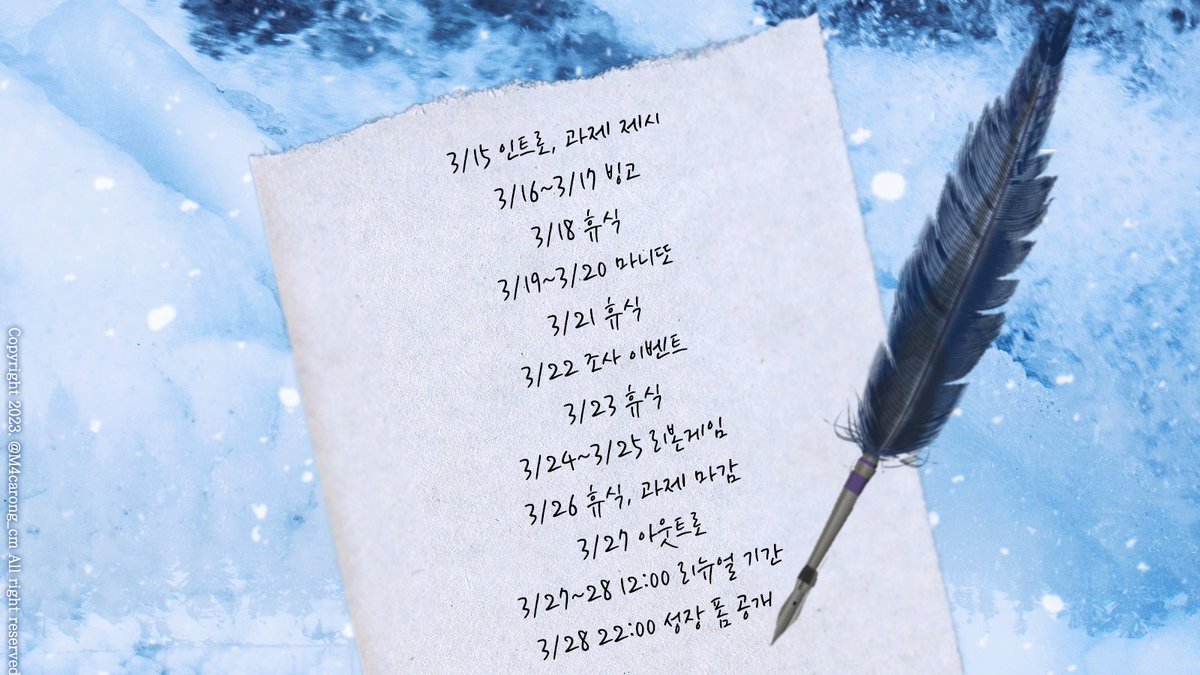 3/15 인트로, 과제 제시
3/16~3/17 빙고
3/18 휴식
3/19~3/20 마니또
3/21 휴식
3/22 조사 이벤트
3/23 휴식
3/24~3/25 리본게임
3/26 휴식, 과제 마감
3/27 아웃트로
3/27~28 12:00 리뉴얼 기간
3/28 22:00 성장 폼 공개
Copyright 2023. @M4carong_cm All right reserved